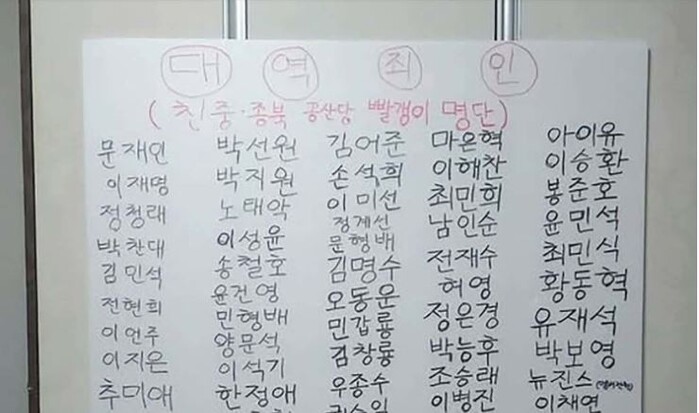 대 역 죄 인
(친중·종북 공산당 빨갱이 명단)
문재인 박선원 김어준 마은혁 아이유
이재명 박지원 손석희 이해찬 이승환
정청래 노태악 이미선 최민희 봉준호
박찬대 이성윤 정계선 남인순 윤민석
김민석 송철호 문형배 전재수 최민식
전현희 윤건영 김명수 허영 황동혁
이언주 민형배 오동운 정은경 유재석
이지은 양문석 민갑룡 박능후 박보영
추미애 이석기 김창룡 조승래 뉴진스
한정애 우종수 이병진 이채연